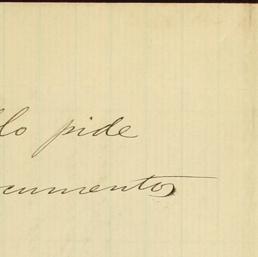 llo pide
cumentos